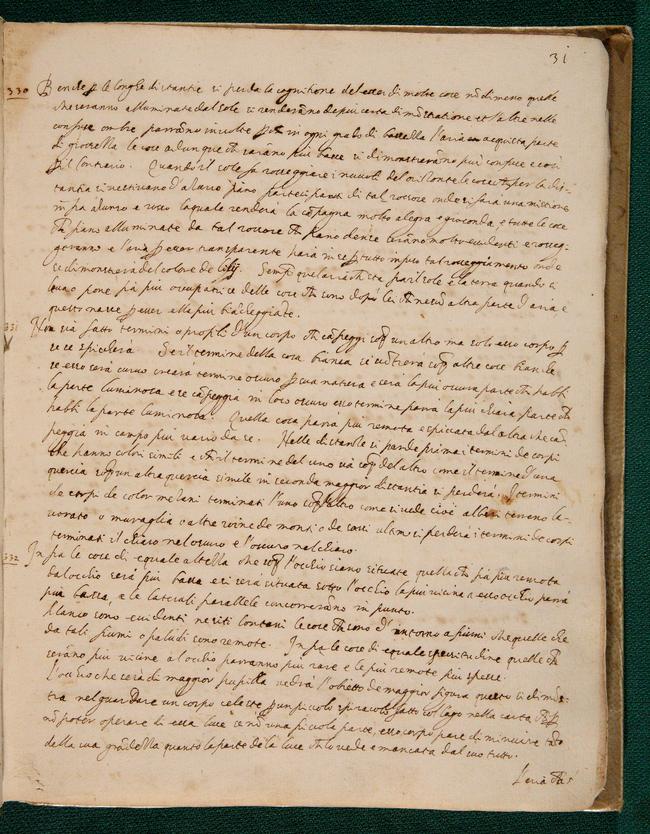 31
330 Benche p le longhe distantie si perda la cognitione del esser di molte cose nōdimeno quelle
che saranno alluminate dal sole si renderāno de piu certa dimostratione et l'altre nelle
confuse ombre parrāno involte p in ogni grado di bassezza l'aria acquista parte
di grossezza le cose adunque saranno piu basse si dimostrerāno piu confuse e cosi
p il contrario. Quando il sole fa rosseggiare i nuvoli del orizonte le cose p la dis-
tantia si vestivano d'azurro parte di tal rossore onde si fara una mistione
infra azurro e rosso la quale rendera la cāpagna molto alegra e gioconda, e tutte le cose
alluminate da tal rossore dense serāno molto evidenti e rosseg-
geranno e l'aria p esser trasparente hara in se p tutto infuso tal rosseggiamento onde
se dimostrera del colore de Semp quel aria sta fra il sole e la terra quando si
leva o pone fia piu occupatrice delle cose sono dopo lei nesuna altra parte d'aria e
questo nasce p esser ella piu biācheggiate.
331 Non sia fatto termini o profili d'un corpo cāpeggi un altro ma solo esso corpo p
se se spichera Se il termine della cosa bianca si scōtrera altre cose bianche
se esso sera curvo creara termine oscuro p sua natura e sera la piu oscura parte habbi
la parte luminosa e se cāpeggia in loco oscuro esso termine parra la piu chiara parte
habbi la parte luminosa. Quella cosa parra piu remota e spiccata dal altra che cā-
peggia in campo piu vario da se. Nelle distantie si perde prima i termini de corpi
che hanno colori simile e il termine del uno sia del altro come il termine d'una
quercia un altra quercia simile in seconda maggior distantia si perdera i termini
de corpi de color mezani terminati l'uno altro come si vede cioè alberi terreno la-
vorato o muraglia o altre roine de monti o de sassi ultimo si perdera i termini de corpi
terminati il chiaro nel oscuro e l'oscuro nel chiaro.
332 In fra le cose di equale altezza che l'occhio siano situate quella fia piu remota
dal occhio sera piu bassa e si sera situata sotto l'occhio la piu vicina a esso occhio parra
piu bassa, e le laterali parallele concorreranno in punto.
Manco sono evidenti ne siti lontani le cose sono d'intorno a fiumi che quelle che
da tali fiumi o paludi sono remote. In fra le cose di equale spessitudine quelle
serāno piu vicine al ochio parranno piu rare e le piu remote piu spesse.
L'occhio che sera di maggior pupilla vedra l'obietto de maggior figura questo si dimos-
tra nel guardare un corpo celeste p un picolo spiracolo fatto l'ago nella carta p
nō poter operare di essa luce se nō una picola parte, esso corpo pare diminuire tāto
della sua grādezza quanto la parte de la luce lo vede e mancata dal suo tutto.
L'eria